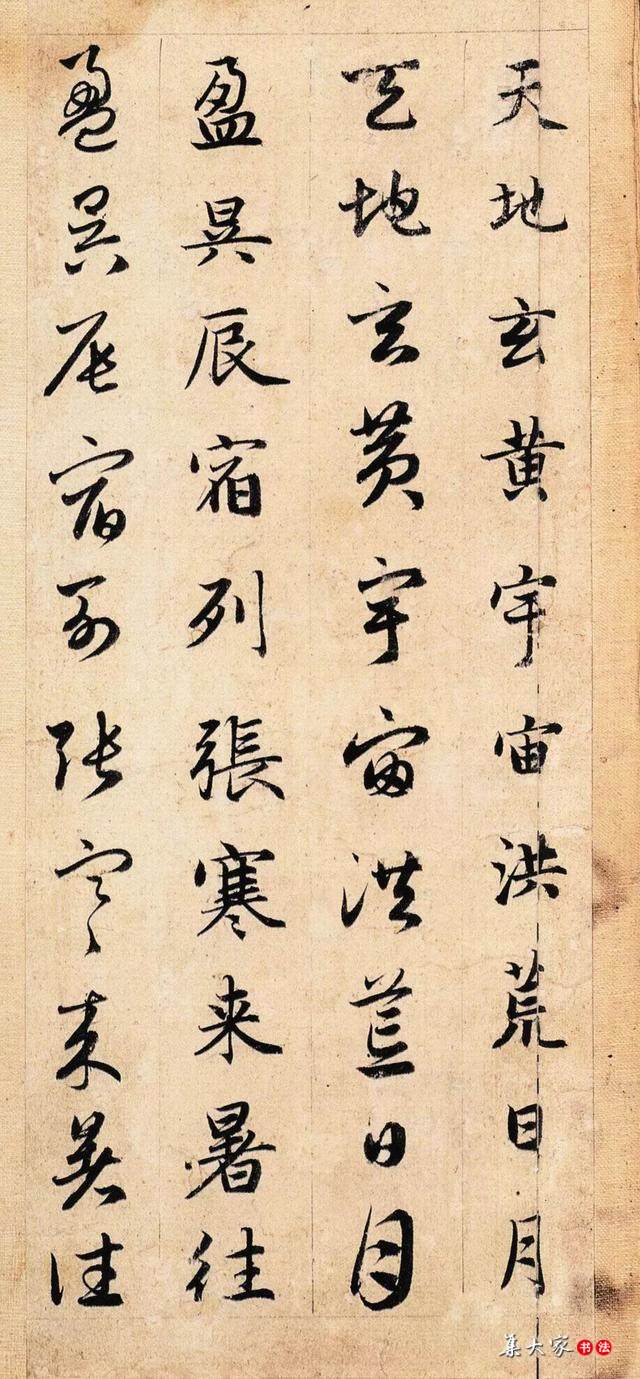 天地玄黄宇宙洪荒日月
天地玄黄宇宙洪荒日月
盈昃辰宿列張寒来暑往
盈昃辰宿列张寒来暑往
集大家书法